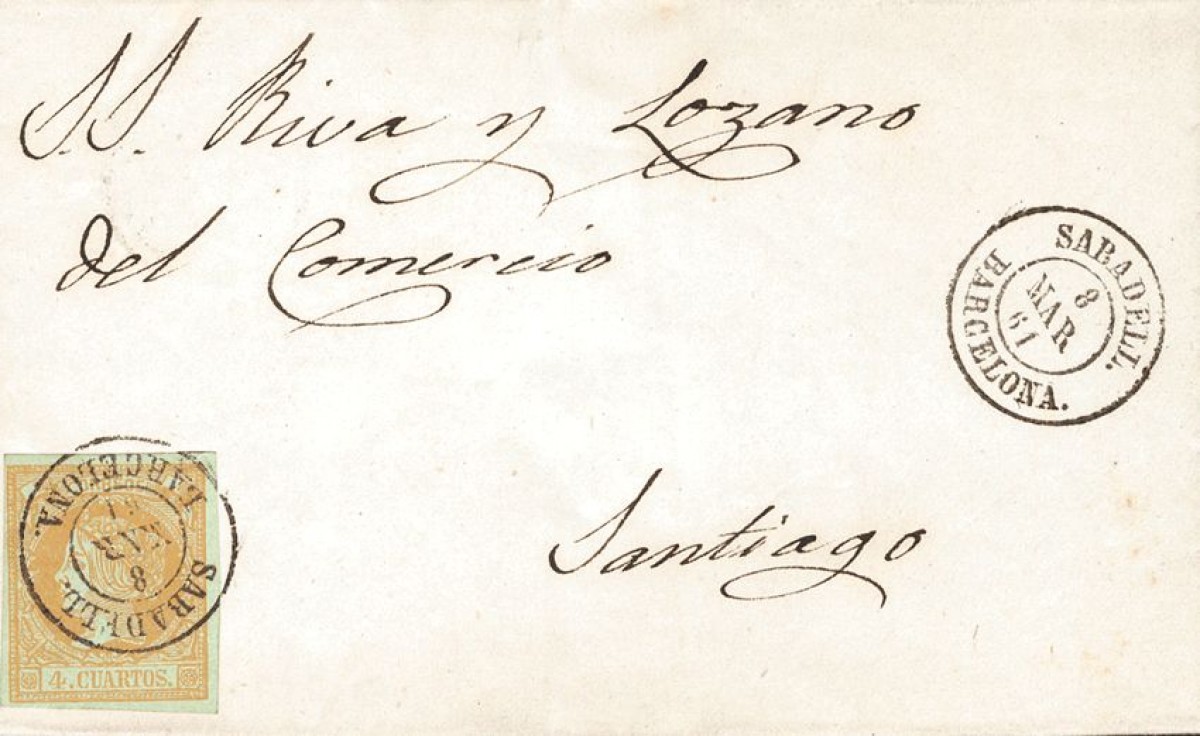 S.S. Riva y Lozano
del Comercio
SABADELL.
BARCELONA.
8
MAR
61
Santiago
BARCELONA.
MAR
8
SABADELL.
4. CUARTOS.